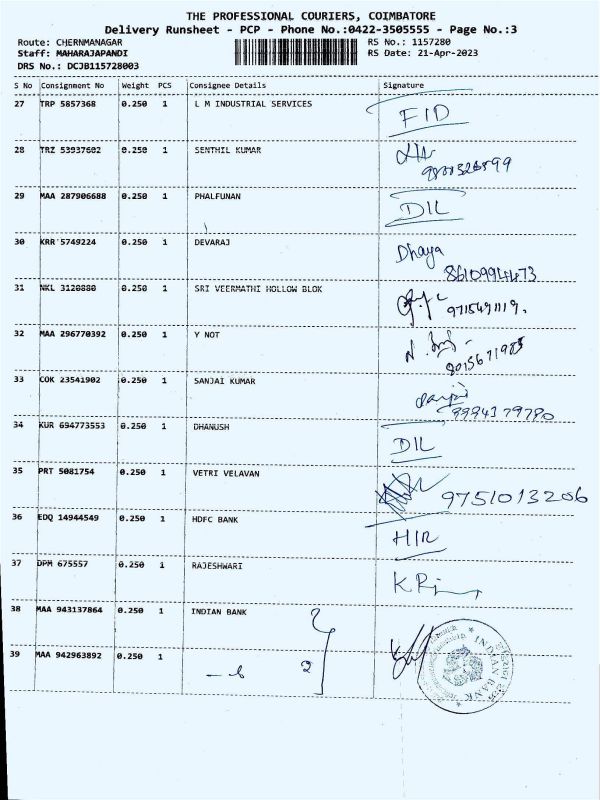 THE PROFESSIONAL COURIERS, COIMBATORE
Delivery Runsheet - PCP - Phone No.:0422-3505555 - Page No.:3
Route: CHERNMANAGAR RS No.: 1157280
Staff: MAHARAJAPANDI RS Date: 21-Apr-2023
DRS No.: DCJB115728003
S No Consignment No Weight PCS Consignee Details Signature
27 TRP 5857368 0.250 1 L M INDUSTRIAL SERVICES FID
28 TRZ 53937602 0.250 1 SENTHIL KUMAR
29 MAA 287906688 0.250 1 PHALFUNAN DIL
30 KRR 5749224 0.250 1 DEVARAJ Dhaya
8610994473
31 NKL 3120880 0.250 1 SRI VEERMATHI HOLLOW BLOK
32 MAA 296770392 0.250 1 Y NOT
8015671985
33 COK 23541902 0.250 1 SANJAI KUMAR
9994379780
34 KUR 694773553 0.250 1 DHANUSH DIL
35 PRT 5081754 0.250 1 VETRI VELAVAN 9751013206
36 EDQ 14944549 0.250 1 HDFC BANK HIR
37 DPM 675557 0.250 1 RAJESHWARI
38 MAA 943137864 0.250 1 INDIAN BANK
39 MAA 942963892 0.250 1 2
INDIAN BANK